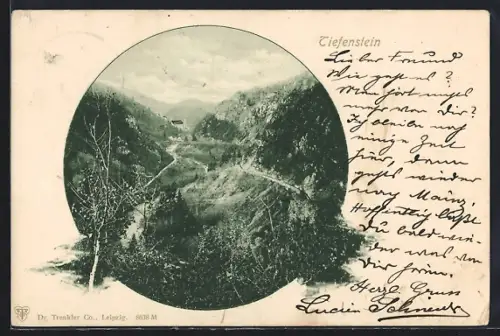 Tiefenstein
Lieber Freund
Wie geht es?
Man hört nichts
mehr von Dir?
Ich bleibe noch
einige Zeit
hier, dann
geht's wieder
nach Mainz.
Hoffentlich läßt
Du bald wie-
der mal von
Dir hören.
Herzl. Gruss
Dr. Trenkler Co., Leipzig. 8636 M